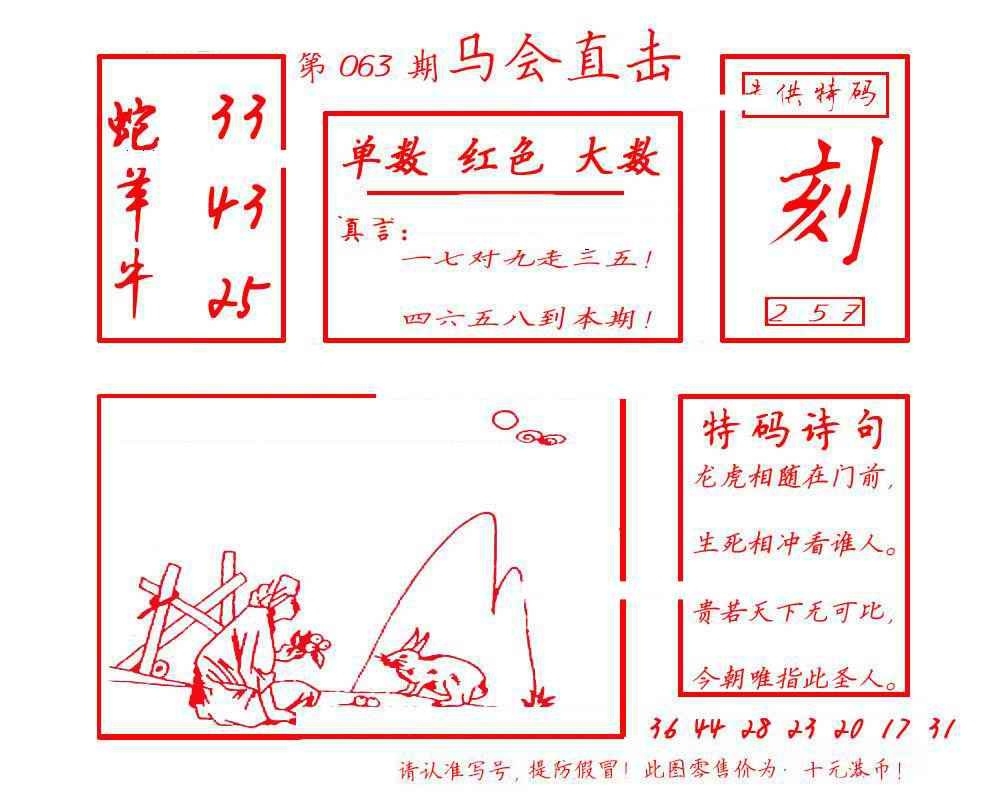 第 063 期 马会直击
蛇 33
羊 43
牛 25
单数 红色 大数
真言：
一七对九走三五！
四六五八到本期！
供特码
刻
2 5 7
特码诗句
龙虎相随在门前，
生死相冲看谁人。
贵若天下无可比，
今朝唯指此圣人。
36 44 28 23 20 17 31
请认准写号，提防假冒！此图零售价为·十元港币！